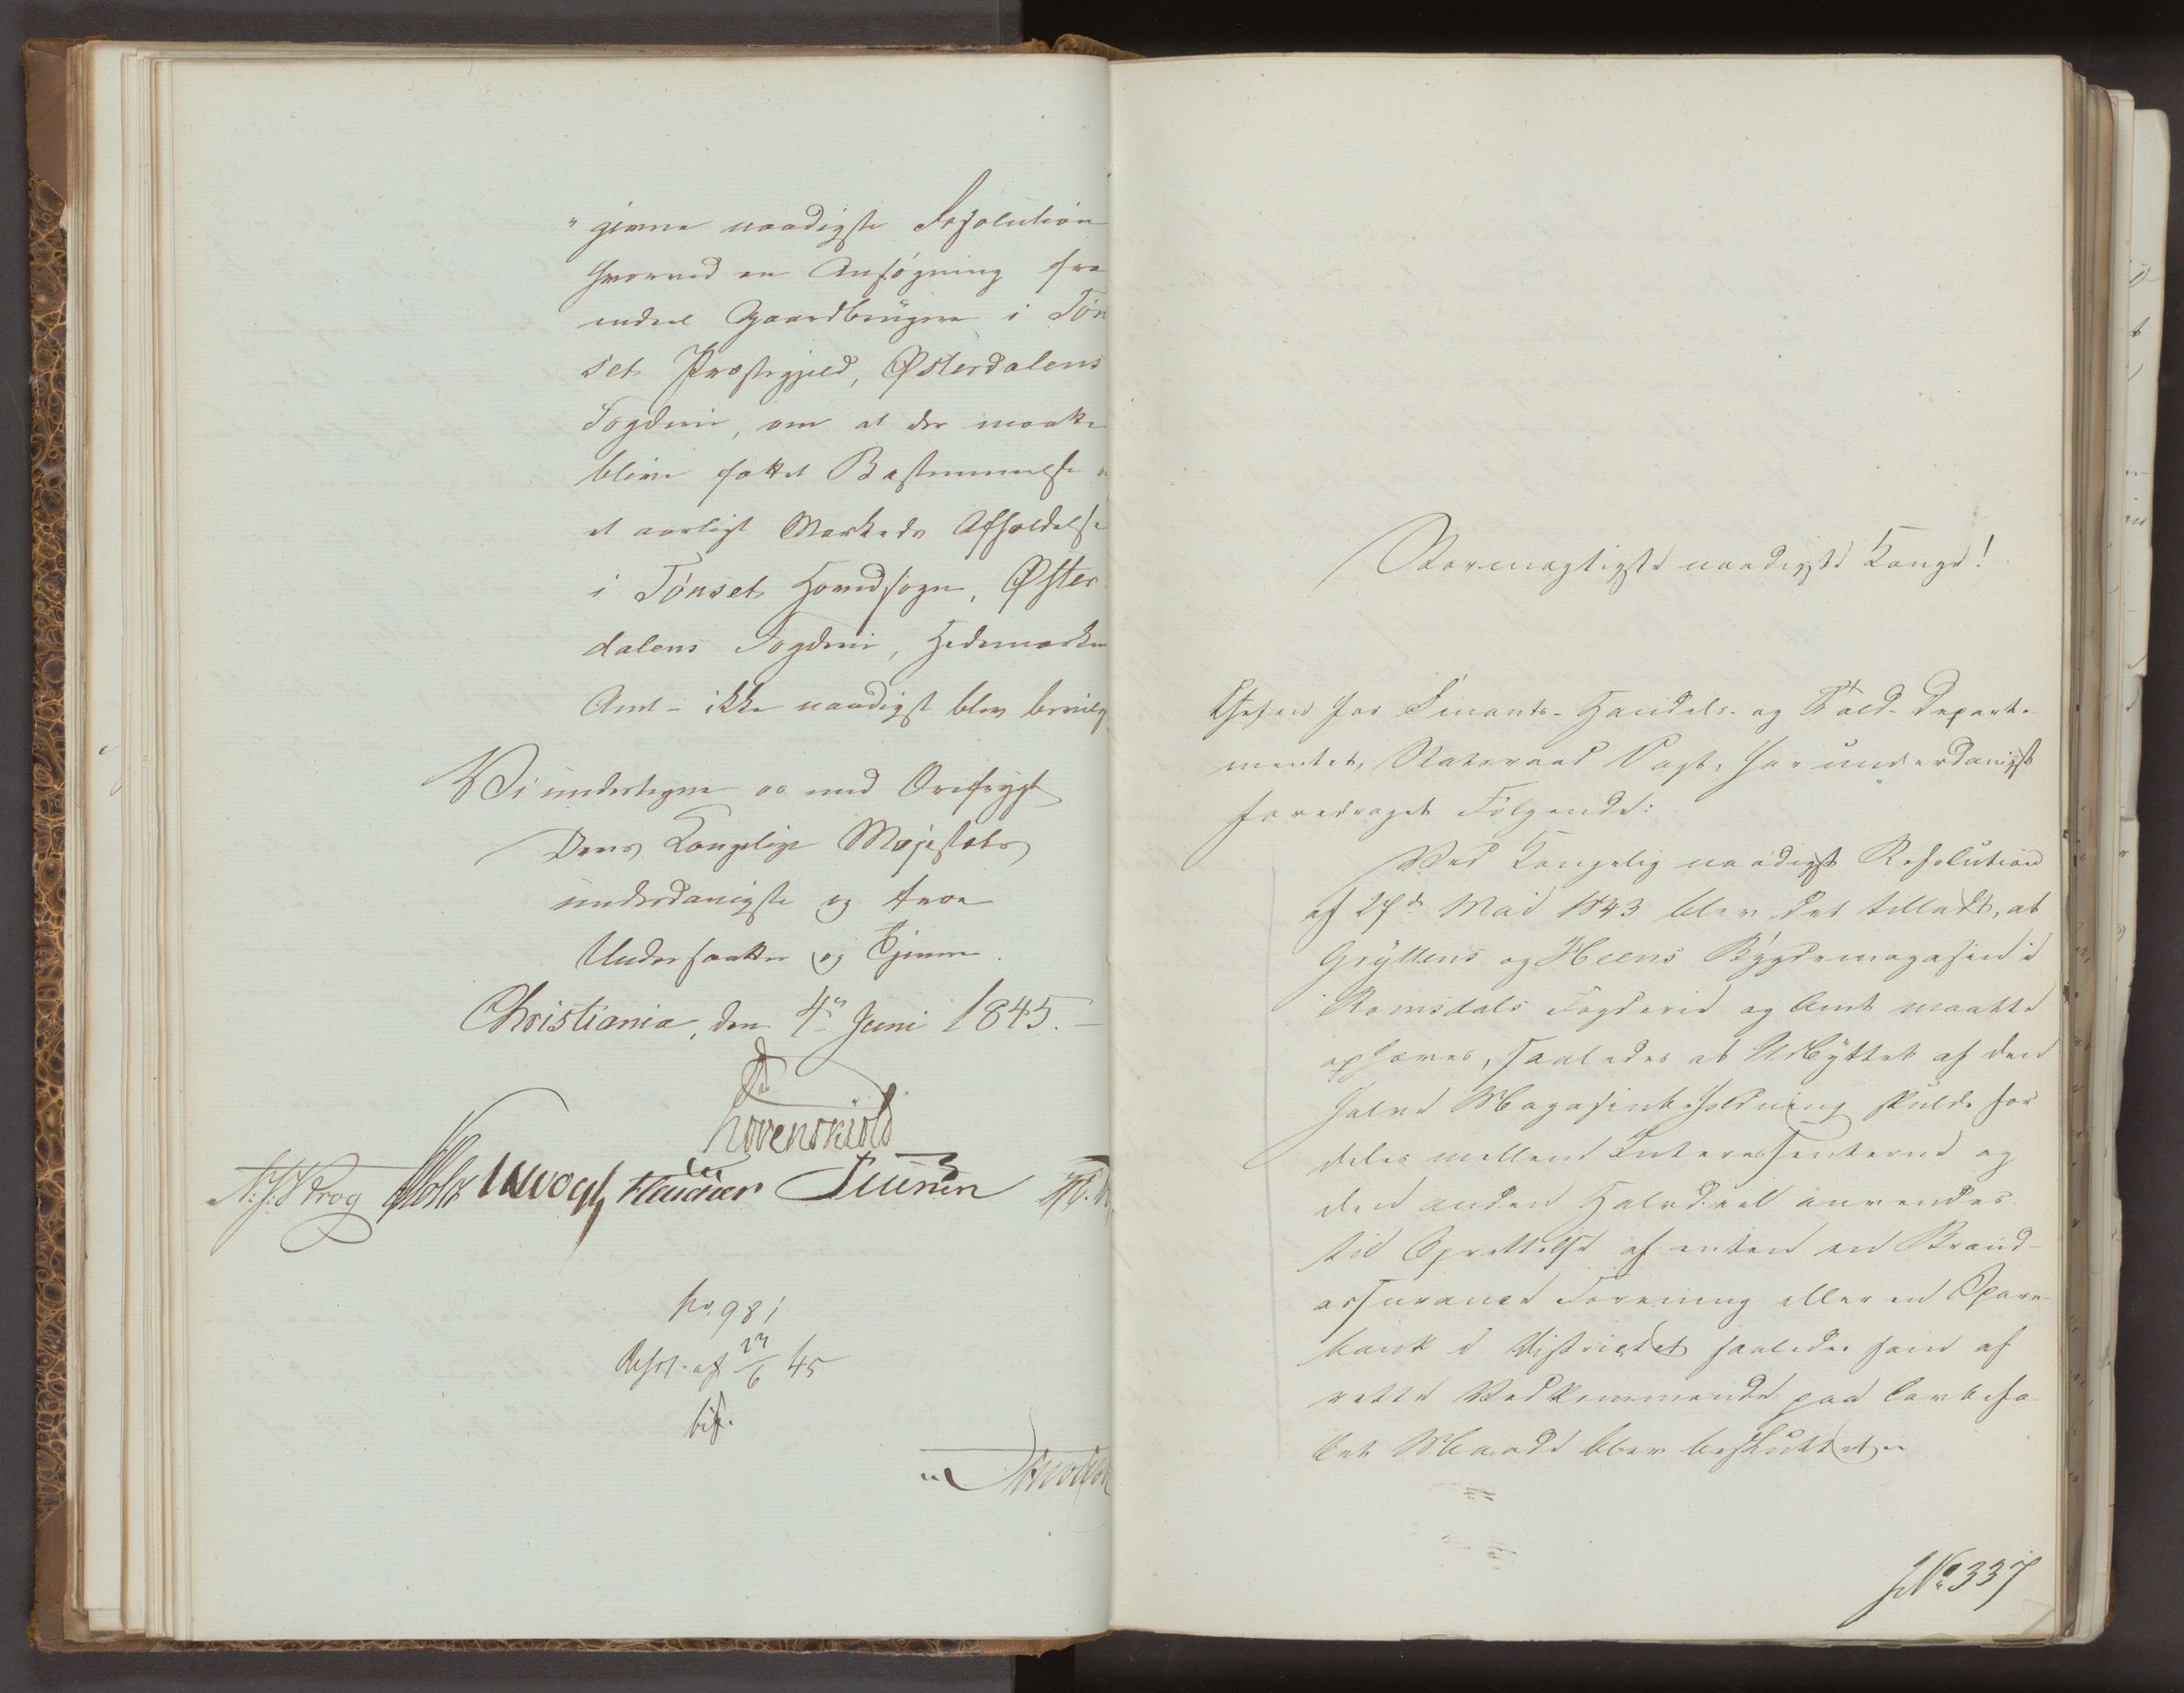 "givne naadigste Resolution
hvorved en Ansøgning fra
endeel Gaardbrugere i Tøn
set Præstegjeld, Østerdalens
Fogderie, om at der maatte
blive fattet Bestemmelse
et aarligt Markeds Afholdelse
i Tønset Hovedsogn, Øster
dalens Fogderi, Hedemarken
Amt - ikke naadigst blev bevilg
Vi undertegne os med Ærefrygt
Deres Kongelige Majestæts
underdanigste og troe
Undersaatter og Tjenere.
Christiania, den 4de Juni 1845.
Løvenskiold
Krog Holst Vogt
No 981
Resol. af 23/6 45
bif.
Stormægtigste naadigste Konge!
Chefen for Finants- Handels- og Told-Departe-
mentet, Statsraad Vogt, har underdanigst
foredraget Følgende:
Ved Kongelig naadigst Resolution
af 27de Mai 1843 blev det tilladt, at
Gryttens og Heens Bygdemagasin i
Romsdals Fogderie og Amt maatte
ophæves, saaledes at Udbyttet af den
halve Magasinbeholdning skulde for
deles mellem Interessenterne og
den anden Halvdeel anvendes
til Oprettelse af enten en Brand-
assurance Forening eller en Spare-
bank i Districtet saaledes som af
rette Vedkommende paa lovbefa-
let Maade blev besluttet.
JNo 337